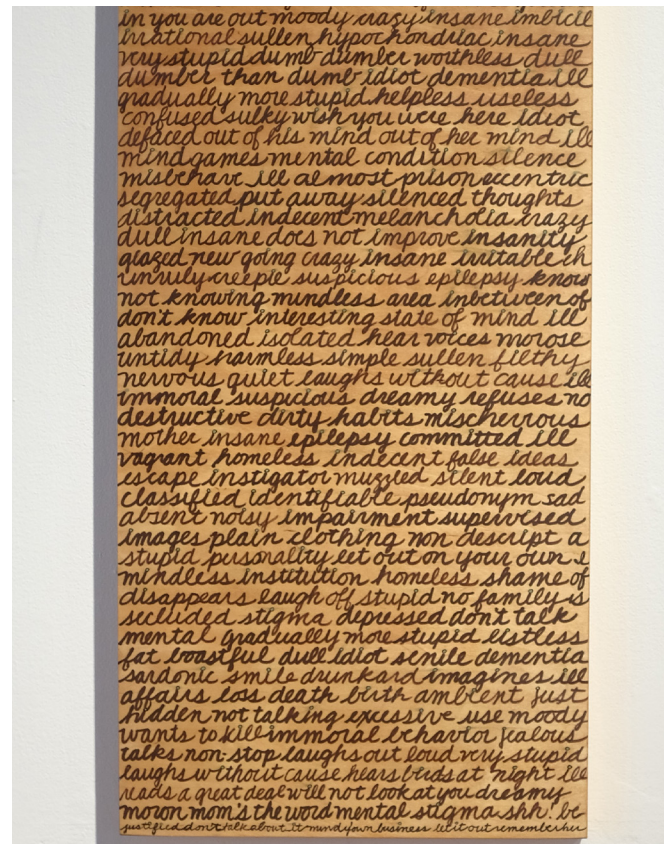 in you are out moody crazy insane imbicil
irrational sullen hypochondriac insane
very stupid dumb dumber worthless dull
dumber than dumb idiot dementia ill
gradually more stupid helpless useless
confused sulky wish you were here idiot
defaced out of his mind out of her mind ill
mind games mental condition silence
misbehave ill almost prison eccentric
segregated put away silenced thoughts
distracted indecent melancholia crazy
dull insane does not improve insanity
glazed new going crazy insane irritable ch
unruly creepie suspicious epilepsy know
not knowing mindless area inbetween of
don't know interesting state of mind ill
abandoned isolated hear voices morose
untidy harmless simple sullen filthy
nervous quiet laughs without cause ill
immoral suspicious dreamy refuses no
destructive dirty habits mischerrous
mother insane epilepsy committed ill
vagrant homeless indecent false ideas
escape instigator muzzled silent loud
classified identifiable pseudonym sad
absent noisy impairment supervised
images plain clothing non descript a
stupid personality let out on your own i
mindless institution homeless shame of
disappears laugh off stupid no family is
secluded stigma depressed don't talk
mental gradually more stupid listless
fat boastful dull idiot senile dementia
sardonic smile drunkard imagines ill
affairs loss death birth ambient just
hidden not talking excessive use moody
wants to kill immoral behavior jealous
talks non-stop laughs out loud very stupid
laughs without cause hears birds at night ill
reads a great deal will not look at you dreamy
moron mom's the word mental stigma shh! be
justified don't talk about it mind your own business let it out remember her